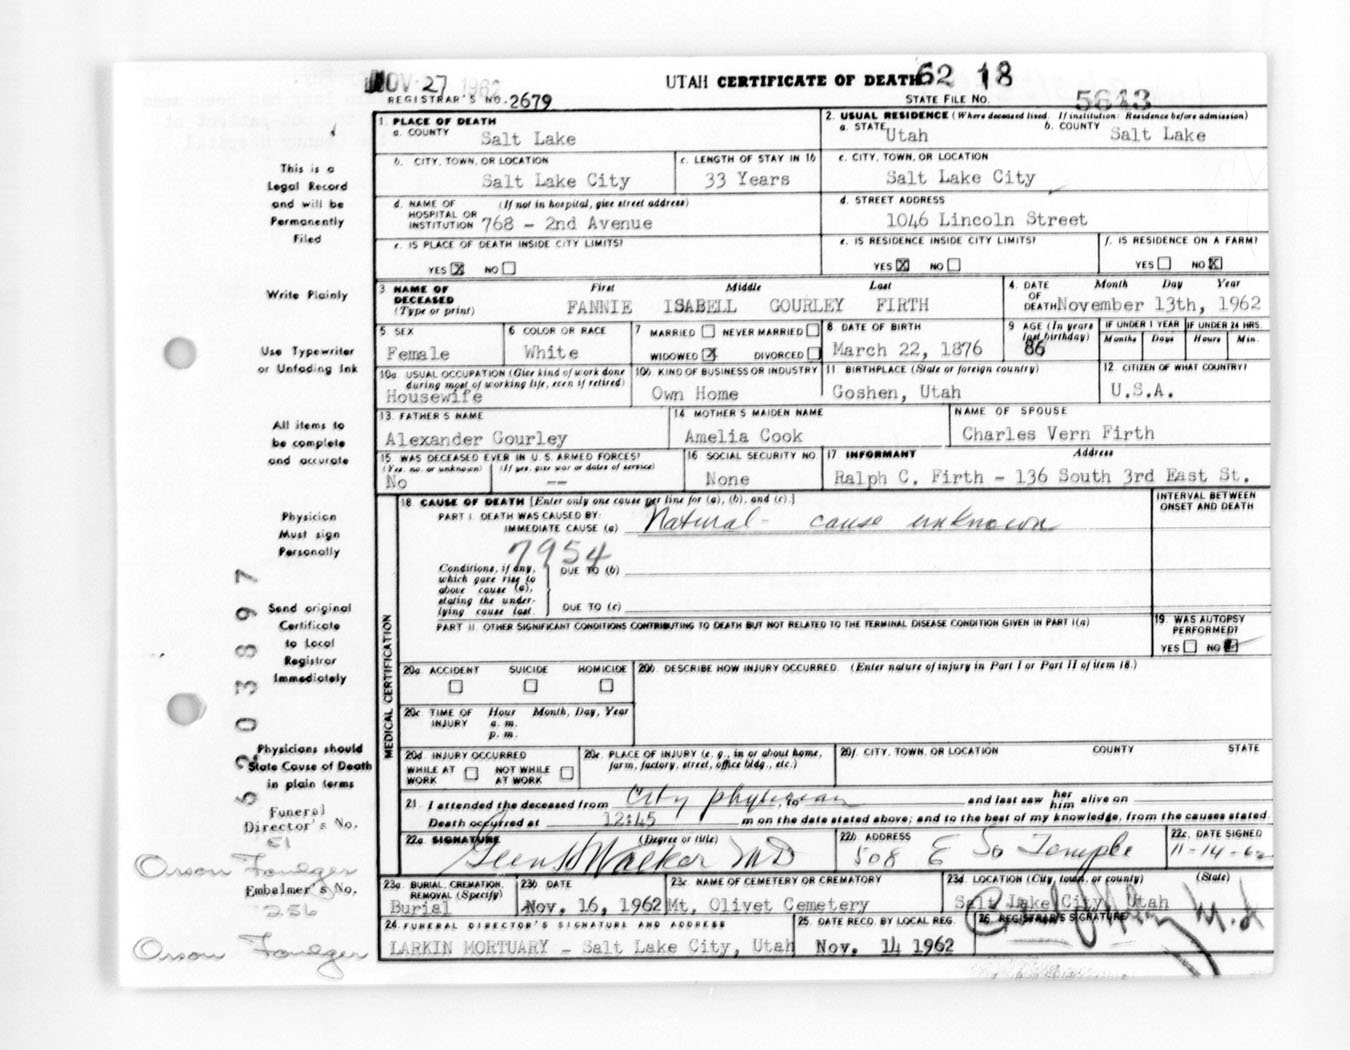 NOV 27 1962
UTAH CERTIFICATE OF DEATH 62 18
REGISTRAR'S NO. 2679
STATE FILE NO. 5643
This is a
Legal Record
and will be
Permanently
Filed
Write Plainly
Use Typewriter
or Unfading Ink
All items to
be complete
and accurate
Physician
Must sign
Personally
Send original
Certificate
to Local
Registrar
Immediately
Physicians should
State Cause of Death
in plain terms
Funeral
Director's No.
Orson Foulger
Embalmer's No.
256
Orson Foulger
1. PLACE OF DEATH
a. COUNTY Salt Lake
2. USUAL RESIDENCE (Where deceased lived. If institution: Residence before admission)
a. STATE Utah b. COUNTY Salt Lake
b. CITY, TOWN, OR LOCATION Salt Lake City
c. LENGTH OF STAY IN 1b 33 Years
c. CITY, TOWN, OR LOCATION Salt Lake City
d. NAME OF (If not in hospital, give street address)
HOSPITAL OR
INSTITUTION 768 - 2nd Avenue
d. STREET ADDRESS 1046 Lincoln Street
e. IS PLACE OF DEATH INSIDE CITY LIMITS?
YES X NO
e. IS RESIDENCE INSIDE CITY LIMITS?
YES X NO
f. IS RESIDENCE ON A FARM?
YES NO X
3 NAME OF DECEASED (Type or print) First Middle Last
FANNIE ISABELL GOURLEY FIRTH
4. DATE OF DEATH Month Day Year
November 13th, 1962
5. SEX Female
6 COLOR OR RACE White
7 MARRIED NEVER MARRIED
WIDOWED X DIVORCED
8 DATE OF BIRTH March 22, 1876
9 AGE (In years last birthday) 86
IF UNDER 1 YEAR Months Days
IF UNDER 24 HRS. Hours Min.
10a. USUAL OCCUPATION (Give kind of work done
during most of working life, even if retired)
Housewife
10b KIND OF BUSINESS OR INDUSTRY Own Home
11 BIRTHPLACE (State or foreign country) Goshen, Utah
12. CITIZEN OF WHAT COUNTRY? U.S.A.
13. FATHER'S NAME Alexander Gourley
14 MOTHER'S MAIDEN NAME Amelia Cook
NAME OF SPOUSE Charles Vern Firth
15 WAS DECEASED EVER IN U.S. ARMED FORCES?
(Yes, no, or unknown) (If yes, give war or dates of service)
No --
16 SOCIAL SECURITY NO None
17 INFORMANT Address
Ralph C. Firth - 136 South 3rd East St.
MEDICAL CERTIFICATION
18 CAUSE OF DEATH [Enter only one cause per line for (a), (b), and (c).]
PART I. DEATH WAS CAUSED BY:
IMMEDIATE CAUSE (a) Natural - cause unknown
INTERVAL BETWEEN
ONSET AND DEATH
7954
Conditions, if any,
which gave rise to
above cause (a),
stating the under-
lying cause last.
DUE TO (b)
DUE TO (c)
PART II. OTHER SIGNIFICANT CONDITIONS CONTRIBUTING TO DEATH BUT NOT RELATED TO THE TERMINAL DISEASE CONDITION GIVEN IN PART I(a)
19. WAS AUTOPSY
PERFORMED?
YES NO
20a ACCIDENT SUICIDE HOMICIDE
20b. DESCRIBE HOW INJURY OCCURRED. (Enter nature of injury in Part I or Part II of item 18.)
20c TIME OF INJURY Hour Month, Day, Year
a. m.
p. m.
20d INJURY OCCURRED
WHILE AT WORK NOT WHILE AT WORK
20e. PLACE OF INJURY (e. g., in or about home,
farm, factory, street, office bldg., etc.)
20f. CITY, TOWN, OR LOCATION COUNTY STATE
21. I attended the deceased from City physician, to and last saw her him alive on
Death occurred at 12:45 m on the date stated above; and to the best of my knowledge, from the causes stated.
22a SIGNATURE (Degree or title) Walker MD
22b ADDRESS 508 E So Temple
22c. DATE SIGNED 11-14-62
23a. BURIAL, CREMATION,
REMOVAL (Specify)
Burial
23b DATE Nov. 16, 1962
23c NAME OF CEMETERY OR CREMATORY Mt. Olivet Cemetery
23d. LOCATION (City, town, or county) (State)
Salt Lake City, Utah
24. FUNERAL DIRECTOR'S SIGNATURE AND ADDRESS
LARKIN MORTUARY - Salt Lake City, Utah
25. DATE RECD. BY LOCAL REG. Nov. 14 1962
26 REGISTRAR'S SIGNATURE